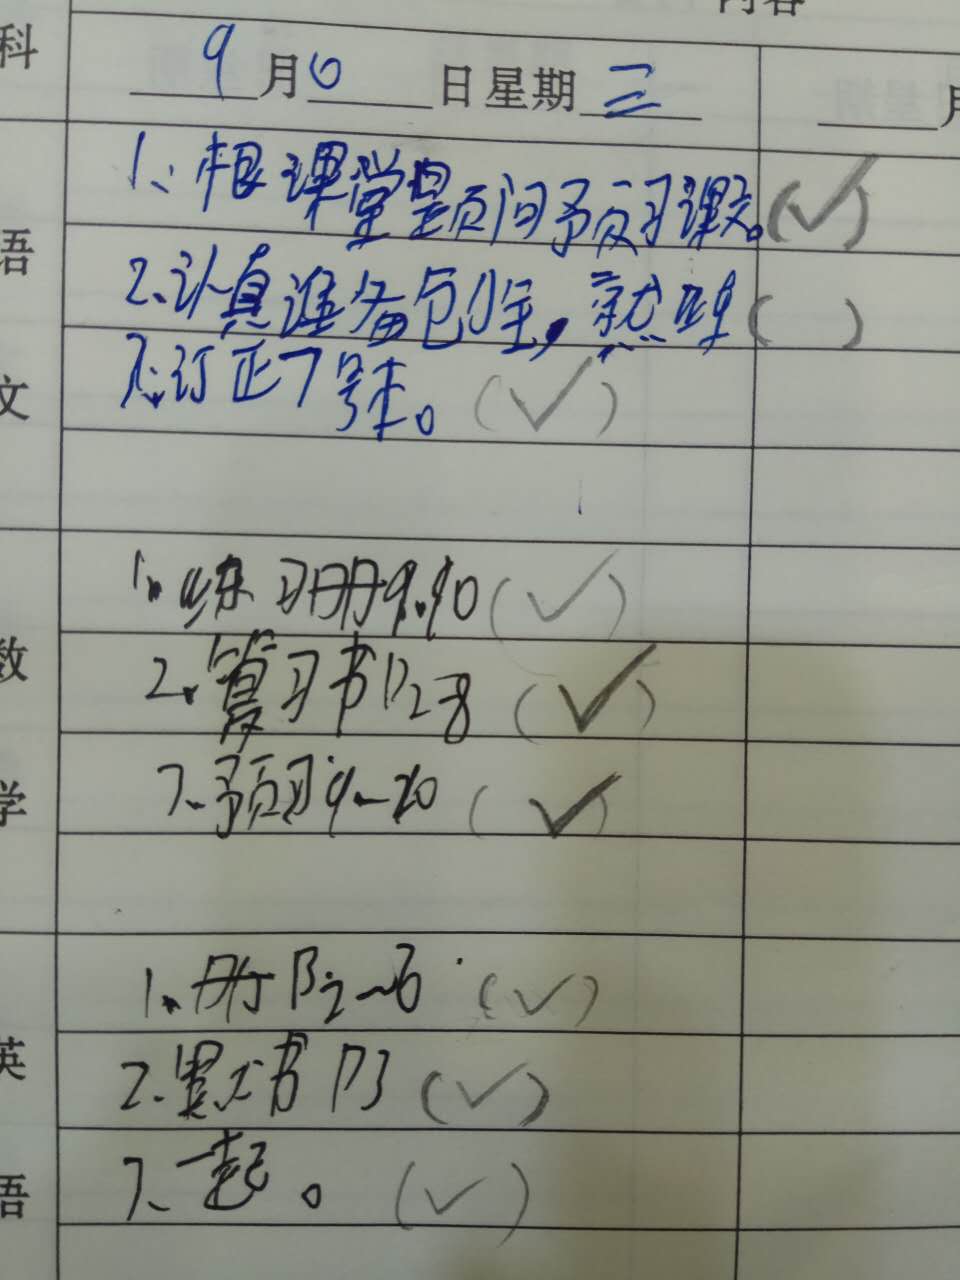 内容
科
9月6日星期三
月
语文
1、根课堂提问预习课文。(✓)
2.认真准备包 ,就 ( )
3.订正7号本。(✓)
数学
1.练习册9.10(✓)
2.复习书P2-8(✓)
3.预习9~10(✓)
英语
1.册P2~6(✓)
2.默书P3(✓)
3、一起。(✓)